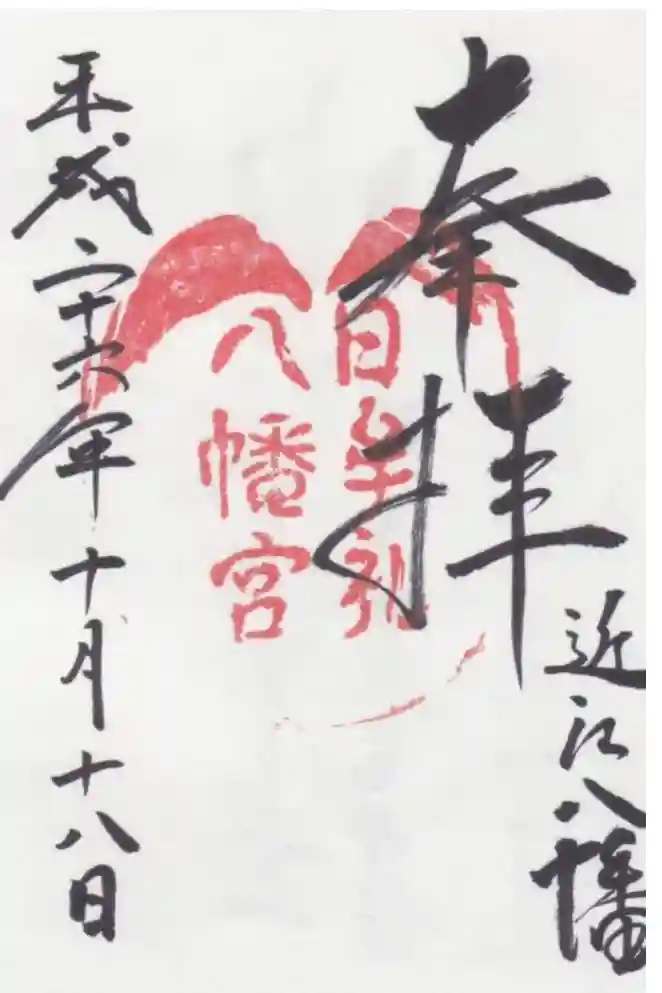 奉拝
近江八幡
日牟禮
八幡宮
平成二十六年十月十八日